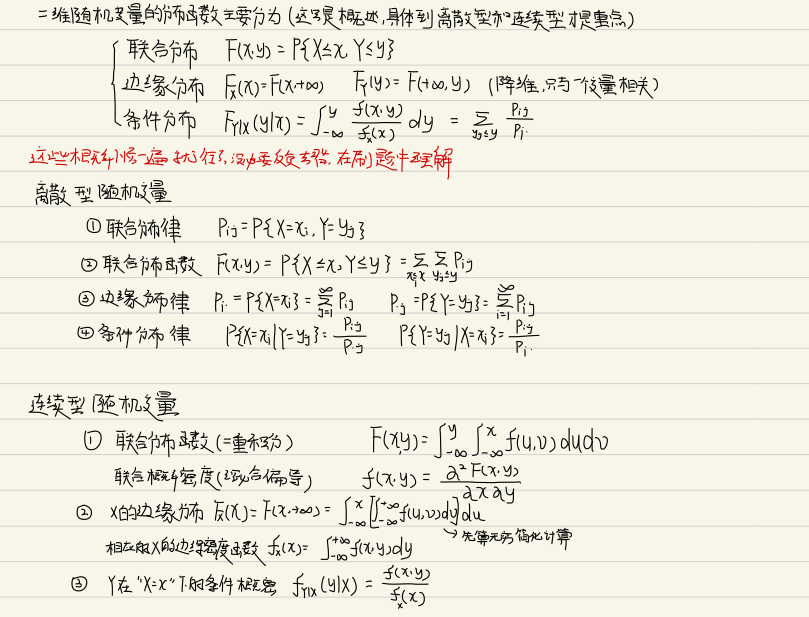 二维随机变量的分布函数主要分为(这只是概述,具体到离散型和连续型才是重点)
联合分布 F(x,y) = P{X≤x, Y≤y}
边缘分布 F_X(x)=F(x,+∞) F_Y(y)=F(+∞,y) (降维,只与一个变量相关)
条件分布 F_{Y|X}(y|x) = ∫_{-∞}^{y} f(x,y)/f_x(x) dy = Σ_{y_j≤y} P_{ij}/P_{i·}
这些概念 一遍就行了,没必要反复 在刷题中理解
离散型随机变量
① 联合分布律 P_{ij}=P{X=x_i, Y=y_j}
② 联合分布函数 F(x,y) = P{X≤x, Y≤y} = Σ_{x_i≤x} Σ_{y_j≤y} P_{ij}
③ 边缘分布律 P_{i·} = P{X=x_i} = Σ_{j=1}^{∞} P_{ij} P_{·j} = P{Y=y_j} = Σ_{i=1}^{∞} P_{ij}
④ 条件分布律 P{X=x_i|Y=y_j} = P_{ij}/P_{·j} P{Y=y_j|X=x_i} = P_{ij}/P_{i·}
连续型随机变量
① 联合分布函数(二重积分) F(x,y) = ∫_{-∞}^{y} ∫_{-∞}^{x} f(u,v) du dv
联合概率密度(混合偏导) f(x,y) = ∂²F(x,y)/∂x∂y
② X的边缘分布 F_X(x) = F(x,+∞) = ∫_{-∞}^{x} [∫_{-∞}^{+∞} f(u,v) dy] du
→ 先算无穷简化计算
相应的X的边缘密度函数 f_x(x) = ∫_{-∞}^{+∞} f(x,y) dy
③ Y在"X=x"下的条件概率 f_{Y|X}(y|x) = f(x,y)/f_x(x)